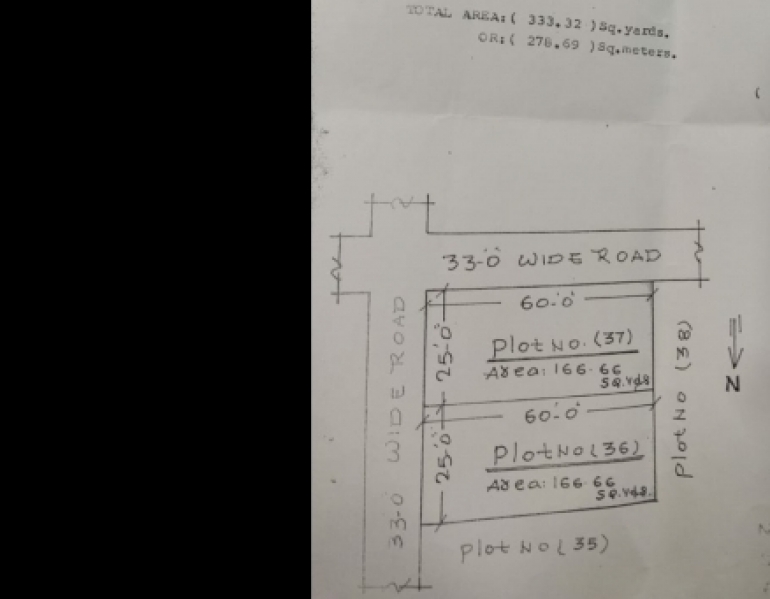 TOTAL AREA:( 333.32 )Sq.yards.
OR:( 278.69 )Sq.meters.
33'-0" WIDE ROAD
60'-0"
25'-0"
Plot No. (37)
Area: 166.66
SQ.Yds
60'-0"
25'-0"
Plot No (36)
Area: 166.66
SQ.Yds.
33-0 WIDE ROAD
Plot No (38)
N
Plot No (35)